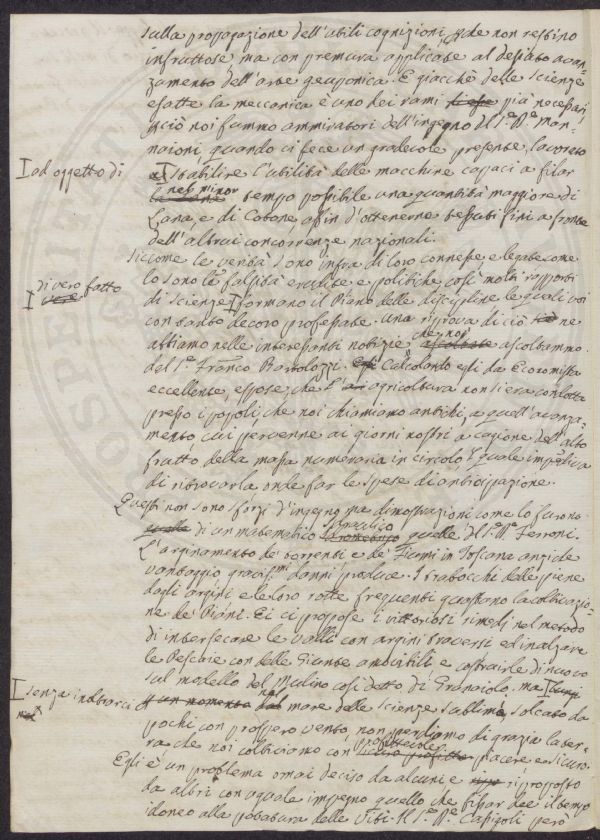 sulla propagazione dell'utili cognizioni, che non restino
infruttose ma con premura applicate al desiato avan-
zamento dell'arte geuponica. E giacchè delle Scienze
esatte la meccanica è uno dei rami più necessari
perciò noi fummo ammiratori dell'ingegno del S.e P.e Man-
naioni quando ci fece un gradevole presente,
I ad oggetto di
stabilire l'utilità delle macchine capaci a filar
nel minor tempo possibile una quantità maggiore di
Lana, e di Cotone, affin d'ottenerne tessuti fini a fronte
dell'altrui concorrenze nazionali.
Siccome le verità sono infra di loro connesse, e legate come
lo sono le falsità erudite e politiche, così molti rapporti
I di vero fatto
di Scienze I formano il Piano delle discipline le quali voi
con tanto decoro professate. Una riprova di ciò ne
abbiamo nelle interessanti notizie che noi ascoltammo
del S.e Franco Bartolozzi. Calcolando egli da Economista
eccellente, espose, che l'agricoltura non si era condotta
presso i popoli, che noi chiamiamo antichi, a quell'avanza-
mento, cui pervenne ai giorni nostri a cagione dell'alto
frutto della massa numeraria in circolo, il quale impediva
di ritrovarla onde far le spese di anticipazione.
Questi non sono sforzi d'ingegno ma dimostrazioni come lo furono
di un matematico idraulico quelle del S.e P.e Ferroni.
L'arginamento de' torrenti e de' Fiumi in Toscana anzi che
vantaggio gravissimi danni produce. I trabocchi delle piene
dagli argini e le loro rotte frequenti guastano la coltivazio-
ne de' Piani. Ei ci propose i vittoriosi rimedj nel metodo
di intersecare le valli con argini traversi ed inalzare
le Pescaie con delle Giunte amovibili e costruirle di nuovo
sul modello del Mulino così detto di Granaiolo. ma
I senza inoltrarci
nel mare delle scienze sublimi, solcato da
pochi con prospero vento, non perdiamo di grazia la ter-
ra che noi coltiviamo con piacere e sicuro.
Egli è un problema omai deciso da alcuni e riproposto
da altri con uguale impegno quello che fissar dee il tempo
idoneo alla potatura delle Viti. Il S.e P.e Capigoli però